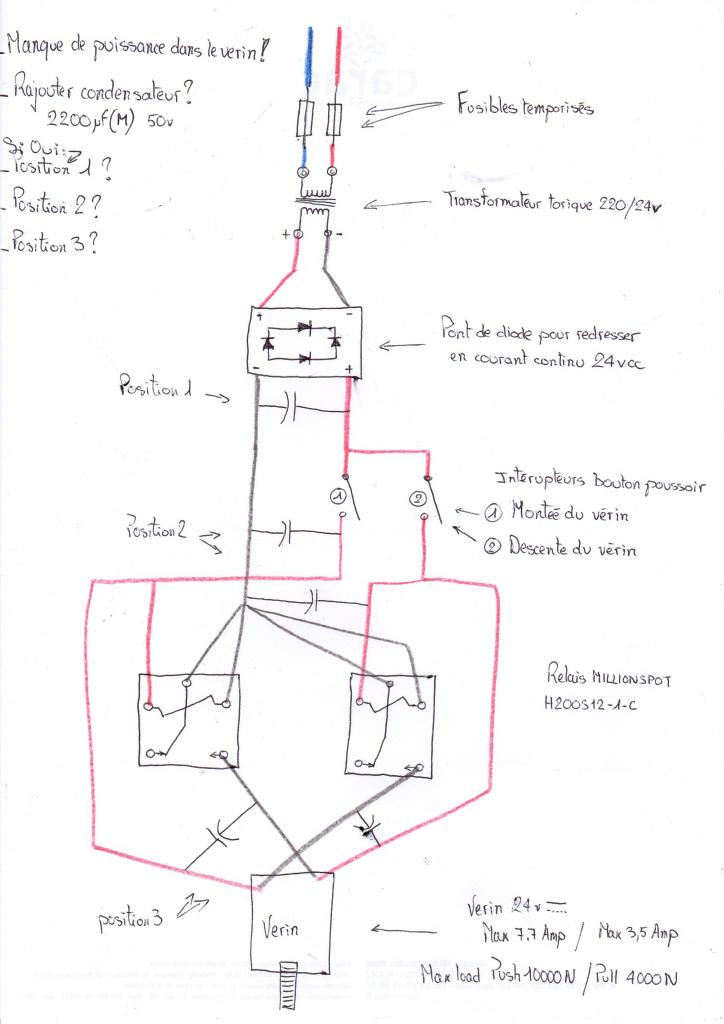 - Manque de puissance dans le verin!
- Rajouter condensateur?
2200µf(M) 50v
Si Oui:
- Position 1?
- Position 2?
- Position 3?
Fusibles temporisés
Transformateur torique 220/24v
+ -
+ -
- +
Pont de diode pour redresser
en courant continu 24vcc
Position 1
Intérupteurs bouton poussoir
① ②
① Montée du vérin
② Descente du vérin
Position 2
Relais MILLIONSPOT
H200S12-1-C
position 3
Verin
Verin 24v
Max 7,7 Amp / Max 3,5 Amp
Max load Push 10000N / Pull 4000N